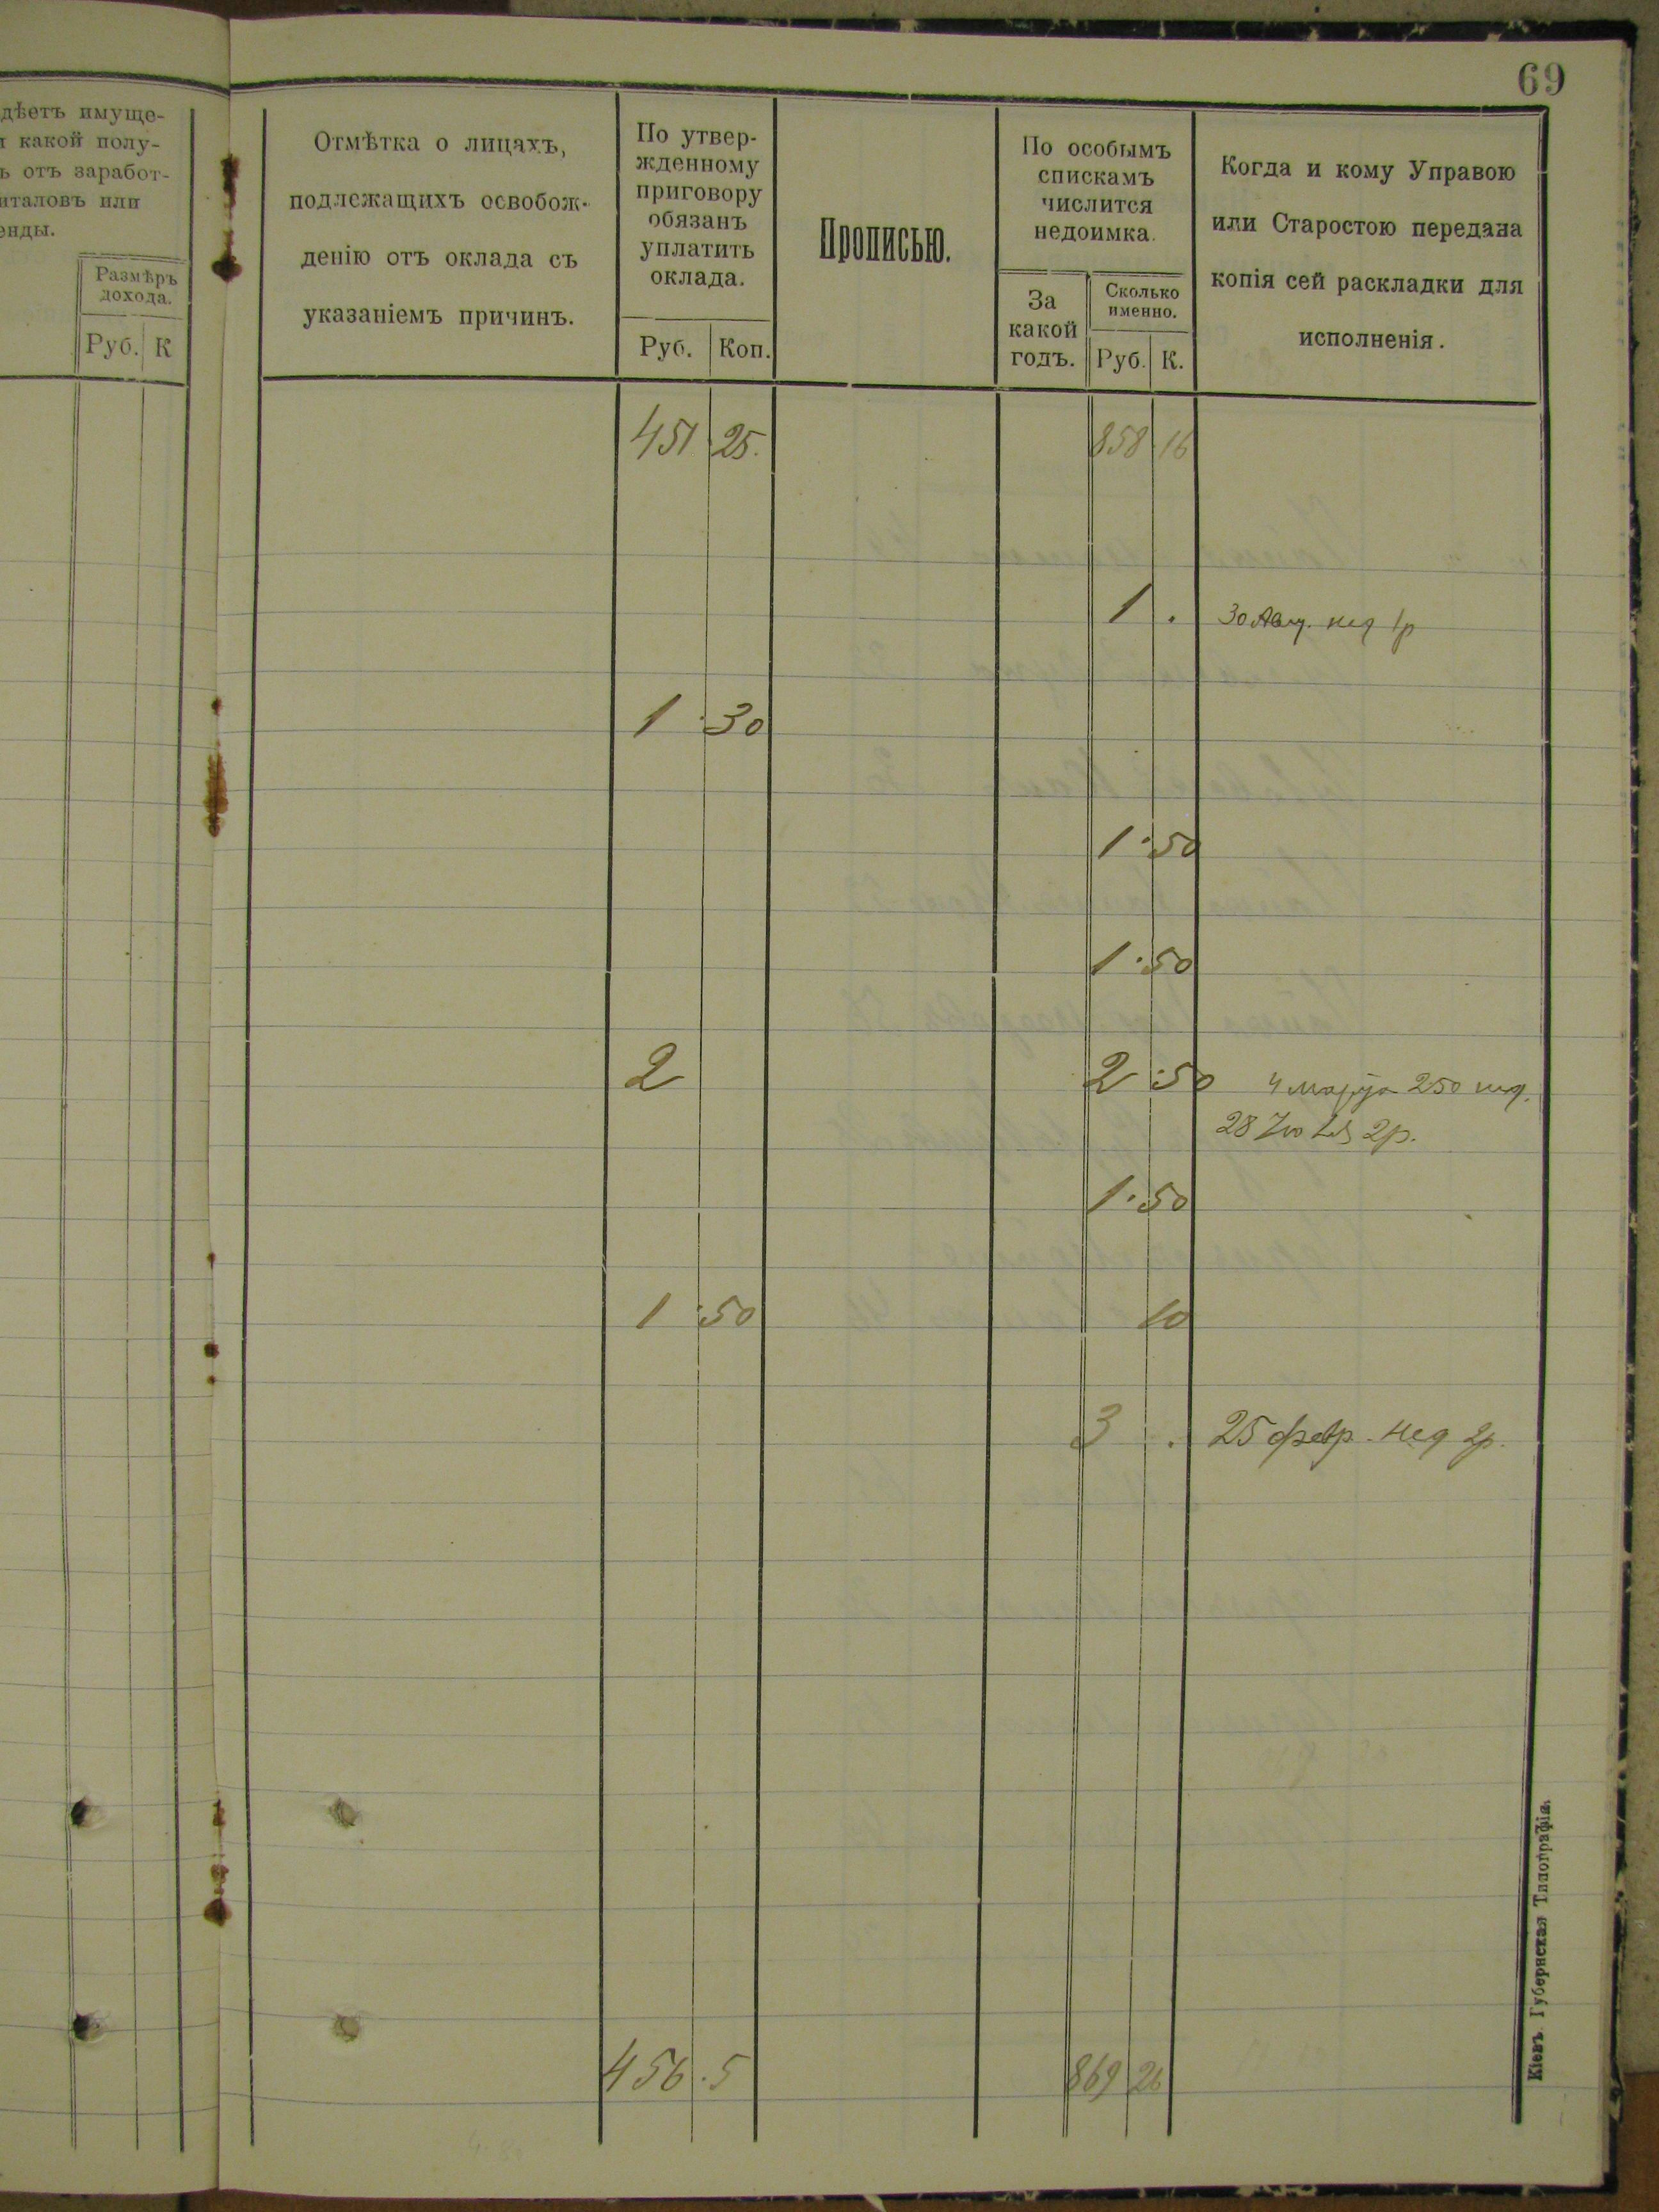 69
дѣетъ имуще-
и какой полу-
ь отъ заработ-
италовъ или
енды.
Размѣръ
дохода.
Руб. К
Отмѣтка о лицахъ,
подлежащихъ освобож-
денію отъ оклада съ
указаніемъ причинъ.
По утвер-
жденному
приговору
обязанъ
уплатить
оклада.
Руб. Коп.
Прописью.
По особымъ
спискамъ
числится
недоимка.
За
какой
годъ.
Сколько
именно.
Руб. К.
Когда и кому Управою
или Старостою передана
копія сей раскладки для
исполненія.
451 25. 858 16
1 . 30 Авг. нед 1р
1 30
1 50
1 50
2 2 50 4 марта 250 нед.
28 2р.
1 50
1 50 10
3 . 25 февр. нед 2р.
456 5 869 26
Кіевъ. Губернская Типографія.